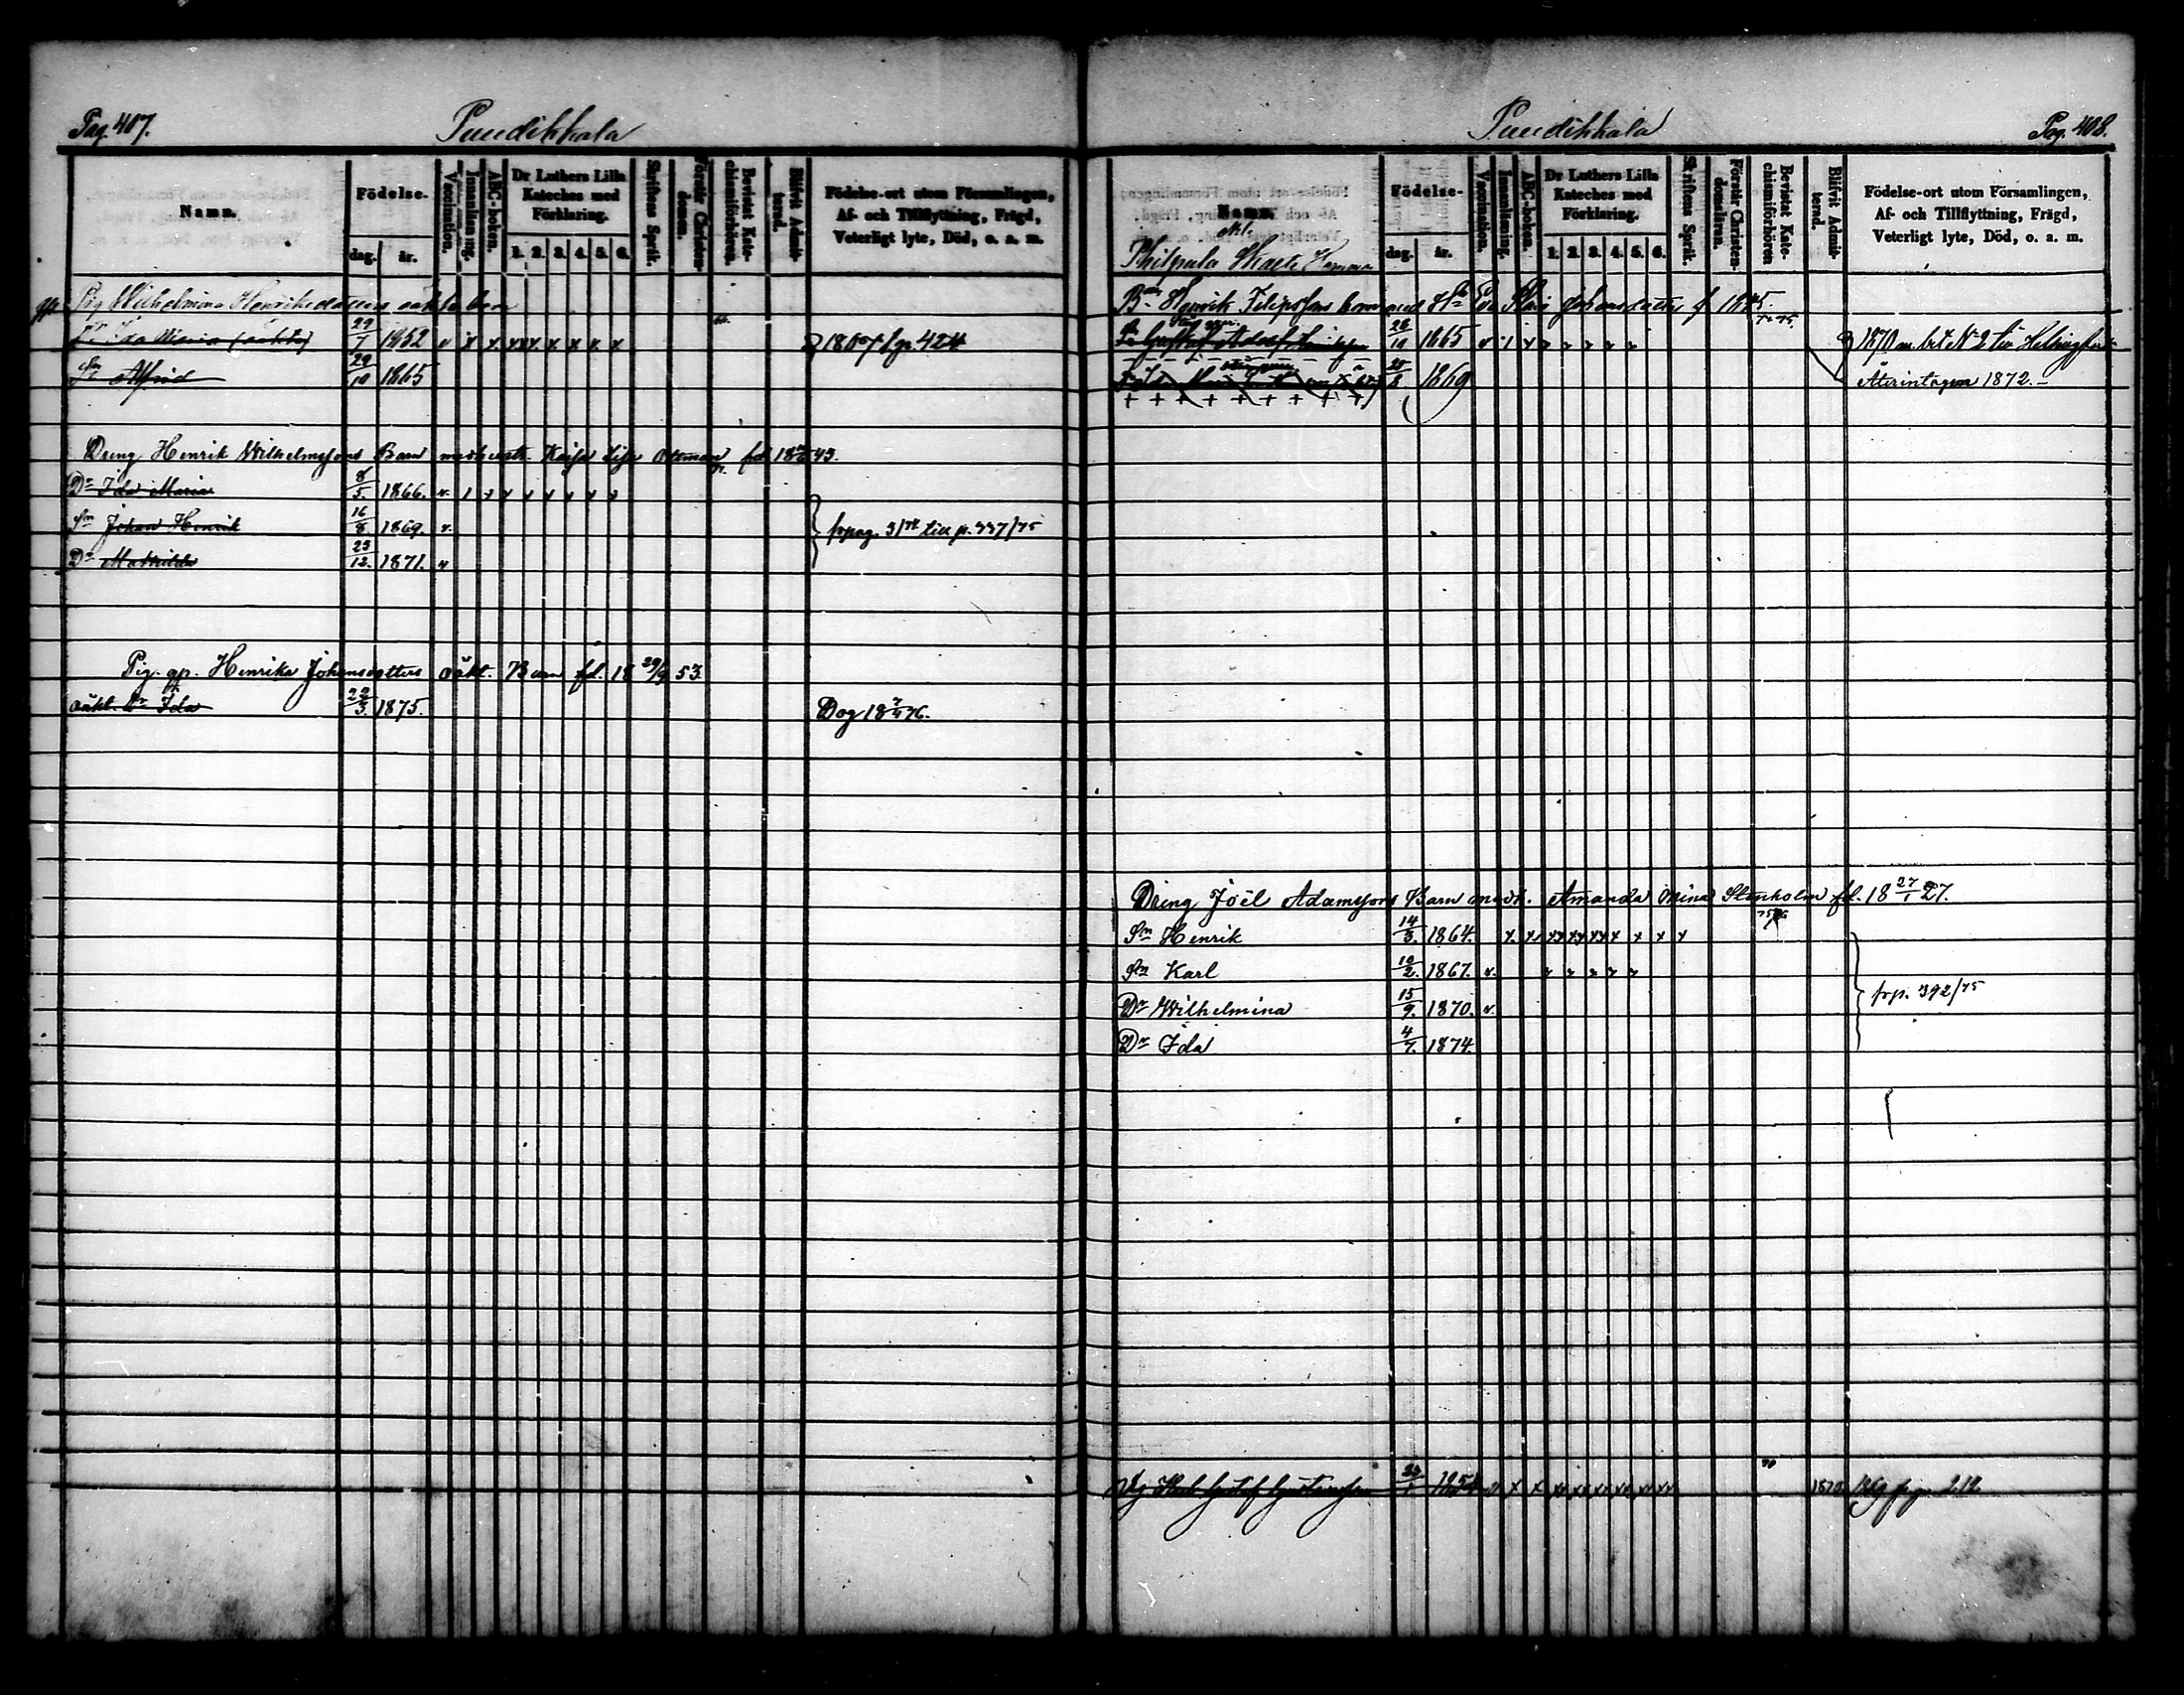 Pag. 407.
Puudikkala
Namn.
Födelse-
dag.
år.
Vaccination.
Innanläsning.
ABC-boken.
Dr Luthers Lilla Kateches med Förklaring.
1. 2. 3. 4. 5. 6.
Skriftens Språk.
Förstår Christendomen.
Bevistat Katechismiförhören.
Blifvit Admitterad.
Födelse-ort utom Församlingen, Af- och Tillflyttning, Frägd, Veterligt lyte, Död, o. a. m.
Pig Wilhelmina Henriksdotters oäkta barn
Dr Ida Maria (oäkta) 29/7 1852 v x x xx x x x x x 1867 p. 424
Sn Alfred 29/10 1865
Dreng Henrik Wilhelmssons Barn med hustr. Kajsa Lisa Ottman fd 18 43.
Dr Ida Maria 8/5. 1866. v.
Sn Johan Henrik 16/8 1869. v.
Dr Mathilda 23/12. 1871. v
frpag. 3/74 till p. 337/75
Pig. gp. Henrika Johansdotters oäkt. Barn fd. 18 29/9 53.
oäkt. Dr Ida 22/3. 1875. Dog 18 76.
Puudikkala
Pag. 408.
Namn.
Födelse-
dag.
år.
Vaccination.
Innanläsning.
ABC-boken.
Dr Luthers Lilla Kateches med Förklaring.
1. 2. 3. 4. 5. 6.
Skriftens Språk.
Förstår Christendomen.
Bevistat Katechismiförhören
Blifvit Admitterad.
Födelse-ort utom Församlingen, Af- och Tillflyttning, Frägd, Veterligt lyte, Död, o. a. m.
Philpula Skatte Hemman
Bn Henrik Filipssons barn med Eva Johansdotter f 1845.
Gustaf Adolf 26/10 1865 1870 m. bet N 2 till Helsingfors
1869 Återintagen 1872.
Dreng Joël Adamssons Barn medh. Amanda Mina Stenholm fd. 18 27/1 27.
Sn Henrik 14/3. 1864. x. x x x x x x x
Sn Karl 10/2. 1867. v.
Dr Wilhelmina 15/9. 1870. v.
Dr Ida 4/7. 1874.
frp. 392/75
Gustaf 1854 1872 1869 fr p 212